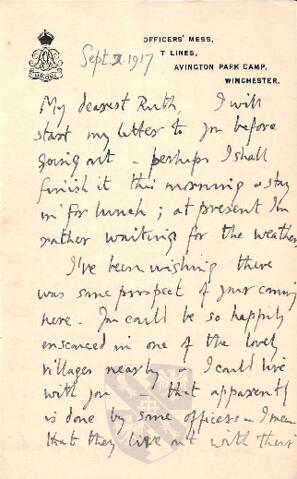 OFFICERS' MESS,
T LINES,
AVINGTON PARK CAMP,
WINCHESTER.
Sept. 2. 1917
My dearest Ruth, I will
start my letter to you before
going out – perhaps I shall
finish it this morning & stay
in for lunch; at present I'm
rather waiting for the weather.
I've been wishing there
was some prospect of your coming
here. You could be so happily
ensconced in one of the lovely
villages nearby – I could live
with you – that apparently
is done by some officers – I mean
that they live out with their